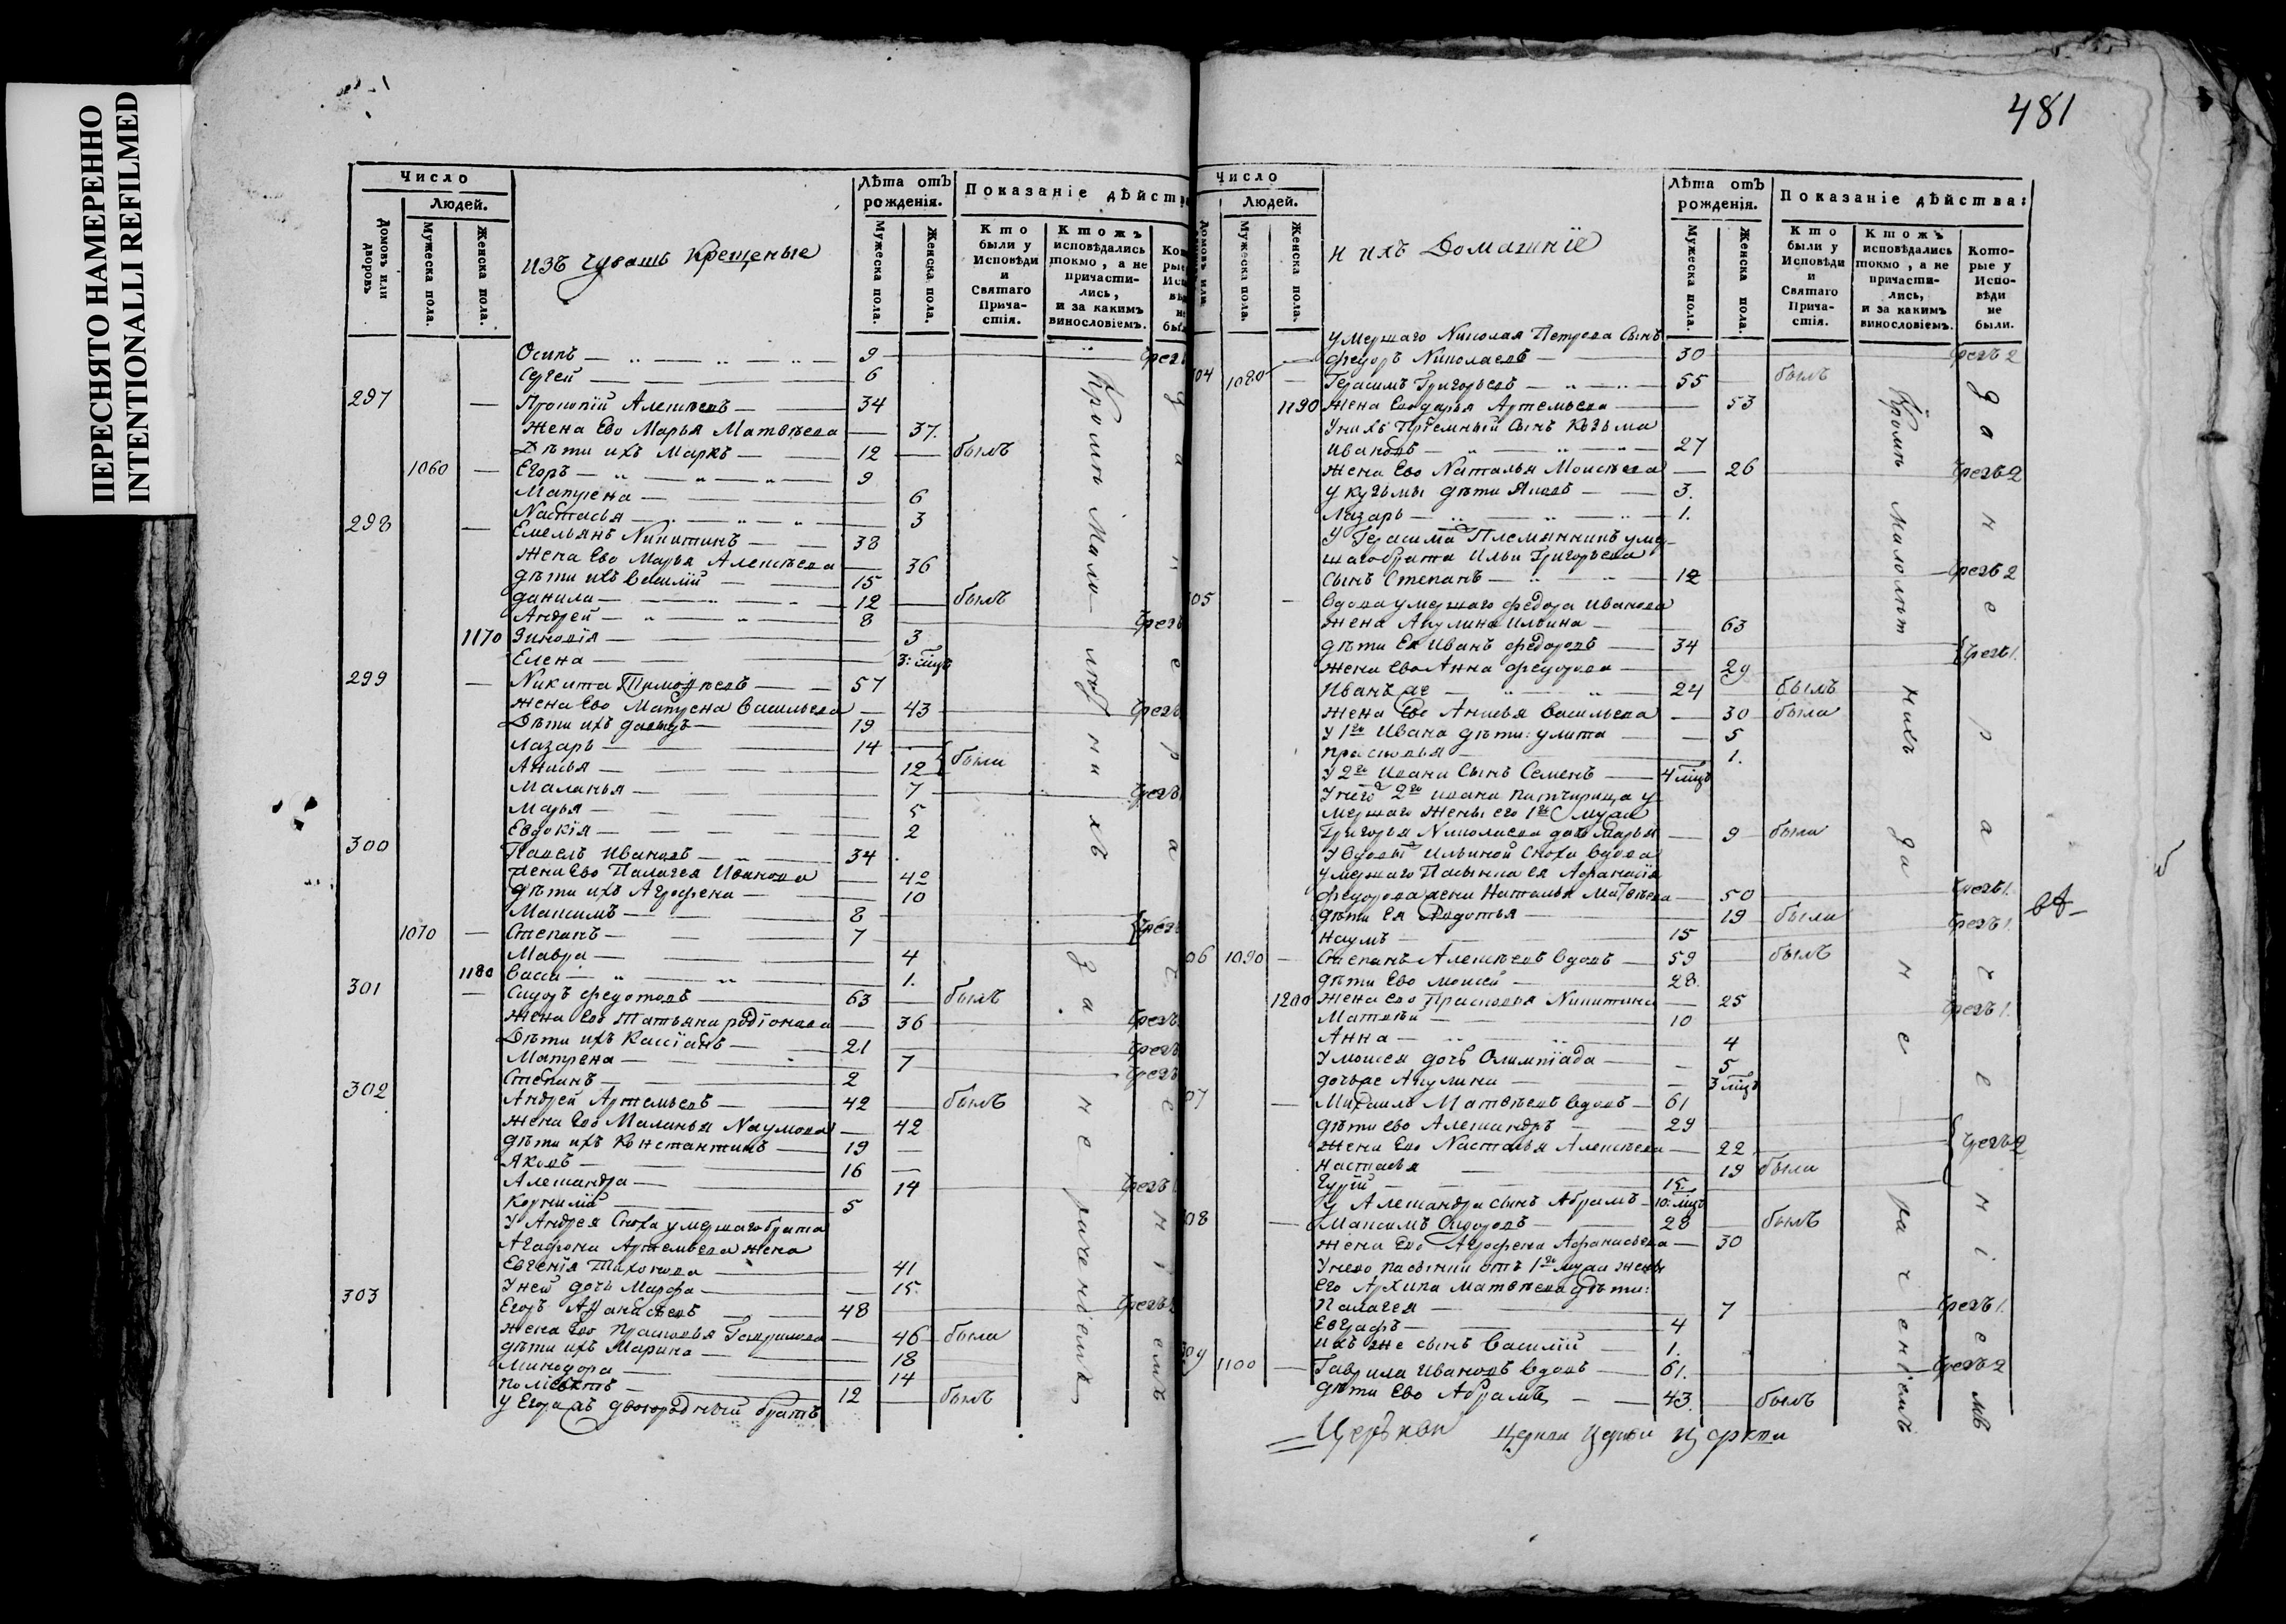 ПЕРЕСНЯТО НАМЕРЕННО
INTENTIONALLI REFILMED
Число
Людей.
Домовъ или дворовъ
Мужеска пола.
Женска пола.
изъ чувашъ крещеные
Лѣта отъ рожденія.
Мужеска пола.
Женска пола.
Показаніе дѣйств
Кто были у Исповѣди и Святаго Причастія.
Ктожъ исповѣдались токмо, а не причастились, и за какимъ винословіемъ.
Осипъ 9
Сергей 6
297 Прокопій Алексѣевъ 34
Жена Ево Марья Матвѣева 37.
Дѣти ихъ Маркъ 12 былъ
1060 Егоръ 9
Матрена 6
Настасья 3
298 Емельянъ Никитинъ 38
Жена Ево Марья Алексѣева 36
дѣти ихъ Василій 15
данила 12 былъ
Андрей 8
1170 Зиновія 3
Елена 3: мцъ
299 Никита Тимофѣевъ 57
Жена Ево Матрена Васильева 43
Дѣти ихъ 19
Лазарь 14
Анисья 12 были
Маланья 7
Марья 5
Евдокія 2
300 Павелъ Ивановъ 34
жена Ево Палагея Иванова 42
дѣти ихъ Агрофена 10
Максимъ 8
1070 Степанъ 7
Мавра 4
1180 Васса 1.
301 Сидоръ Федотовъ 63 былъ
Жена Ево Татьяна родіонова 36
Дѣти ихъ Кассіанъ 21
Матрена 7
Степанъ 2
302 Андрей Артемьевъ 42 былъ
Жена Ево Маланья Наумова 42
дѣти ихъ Константинъ 19
Яковъ 16
Алеѯандра 14
Корнилій 5
У Андрея Сноха умершаго брата
Агафона Артемьева жена
Евгенія Тихонова 41
У ней дочь Марфа 15.
303 Егоръ Афанасьевъ 48
Жена Ево Прасковья Гаврилова 46 была
дѣти ихъ Марина 18
Минодора 14
12 былъ
у Егора двоюродный братъ
Кромѣ Малолѣтнихъ за нераченіемъ
481
Число
Людей.
Мужеска пола.
Женска пола.
и ихъ Домашніе
Лѣта отъ рожденія.
Мужеска пола.
Женска пола.
Показаніе дѣйства:
Кто были у Исповѣди и Святаго Причастія.
Ктожъ исповѣдались токмо, а не причастились, и за какимъ винословіемъ.
Которые у Исповѣди не были.
умершаго Николая Петрова Сынъ
федоръ Николаевъ 30 чрезъ 2
04 1080 Герасимъ Григорьевъ 55 былъ
1190 Жена Ево дарья Артемьева 53
У нихъ Приемный сынъ Козьма
Ивановъ 27
Жена Ево Наталья Моисѣева 26 чрезъ 2
у кузьмы дѣти Яковъ 3.
Лазарь 1.
У Герасима Племянникъ уме-
шаго брата Ильи Григорьева
сынъ Степанъ 12 чрезъ 2
05 Вдова умершаго федора Иванова
жена Акулина Ильина 63
дѣти Ея Иванъ федоровъ 34 чрезъ 1.
Жена Ево Анна федорова 29
Иванъ же 24 былъ
Жена Ево Анисья Васильева 30 была
У 1го Ивана дѣти: улита 5
прасковья 1.
У 2го Ивана Сынъ Семенъ 4 мцъ
У него 2го ивана патчерица у-
мершаго Жены его 1го мужа
Григорья Николаева дочь Марья 9 была
У вдовы Ильиной Сноха вдова
умершаго Пасынка ея Афанасія
федорова жена Наталья Матвѣева 50 чрезъ 1.
дѣти Ея Федотья 19 была
Наумъ 15 чрезъ 1.
06 1090 Степанъ Алексѣевъ вдовъ 59 былъ
дѣти Ево Моисей 28.
1200 Жена ево Прасковья Никитина 25 чрезъ 1.
Матвѣй 10
Анна 4
У Моисея дочь Олимпіада 5
дочь же Акулина 3 мцъ
07 Михаилъ Матвѣевъ вдовъ 61
дѣти ево Алеѯандръ 29
жена Ево Настасья Алексѣева 22 чрезъ 2
Настасья 19 была
Гурій 15.
у Алеѯандра сынъ Абрамъ 10: мцъ
08 Максимъ Сидоровъ 28 былъ
Жена Ево Агрофена Афанасьева 30
У нево пасынки отъ 1го мужа жены
Его Архипа Матвѣева дѣти:
Палагея 7 чрезъ 1.
Евграфъ 4
ихъ же сынъ Василій 1.
09 1100 Гаврила Ивановъ вдовъ 61. чрезъ 2
дѣти Ево Абрамъ 43. былъ
Кромѣ малолѣтнихъ за нераченіемъ
Церькви Церкви Церкви Церкви